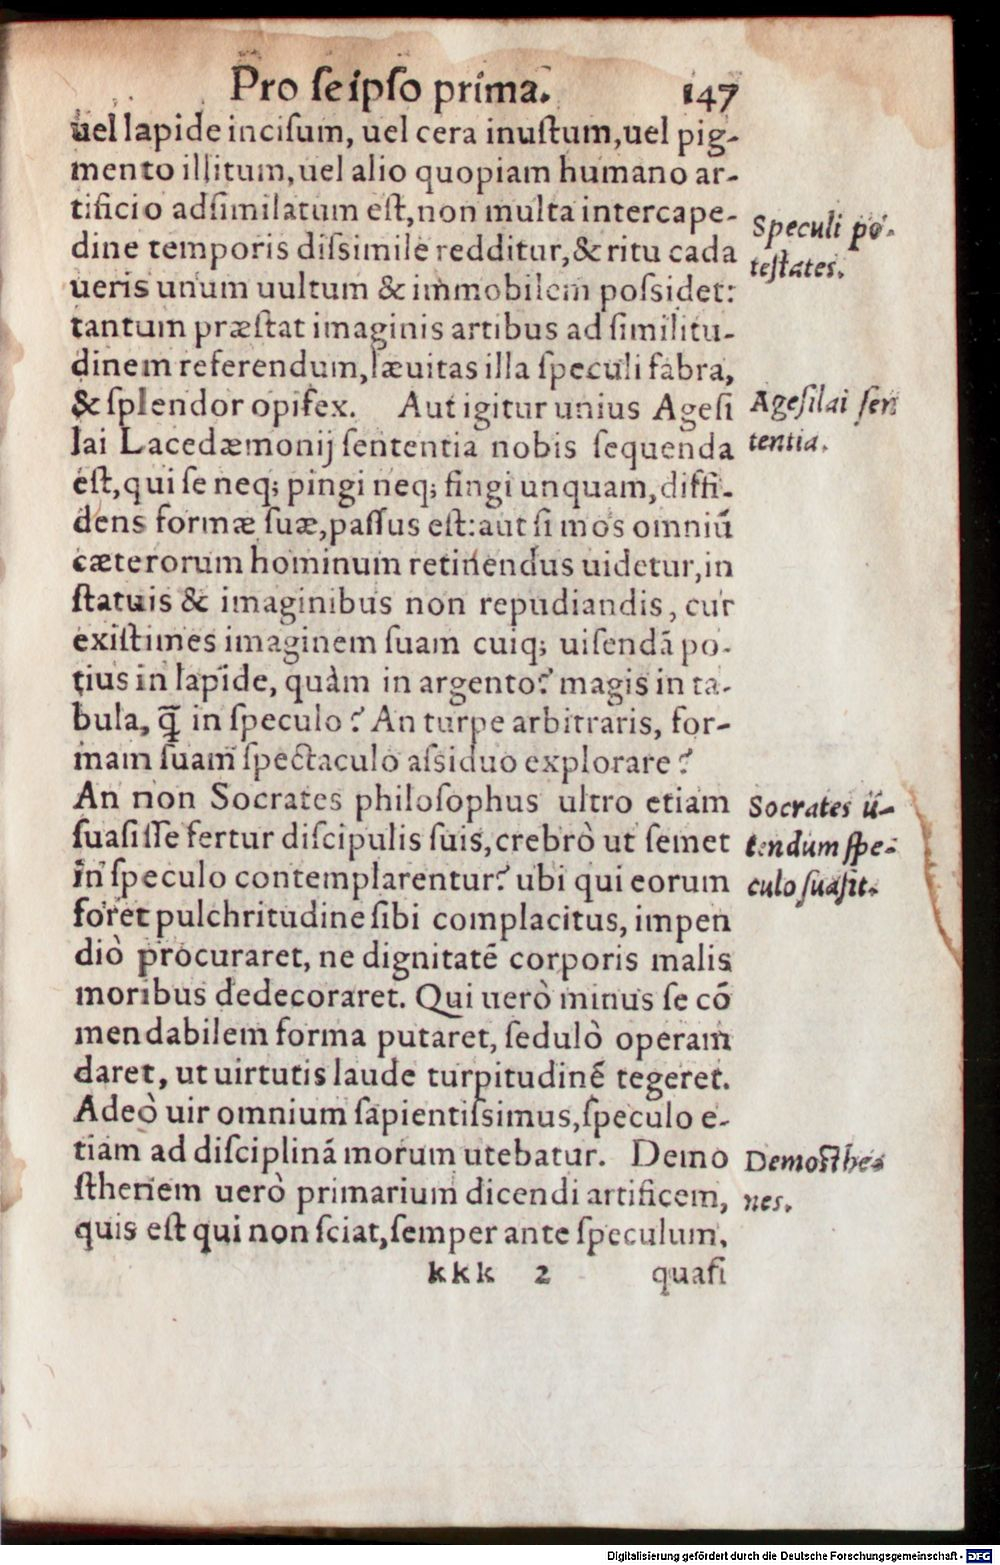 Pro ſeipſo prima. 147
uel lapide inciſum, uel cera inuſtum, uel pig-
mento illitum, uel alio quopiam humano ar-
tificio adſimilatum eſt, non multa intercape-
dine temporis diſsimile redditur, & ritu cada
ueris unum uultum & immobilem poſsidet:
tantum præſtat imaginis artibus ad ſimilitu-
dinem referendum, læuitas illa ſpeculi fabra,
& ſplendor opifex. Aut igitur unius Ageſi
lai Lacedæmonij ſententia nobis ſequenda
eſt, qui ſe neq; pingi neq; fingi unquam, diffi-
dens formæ ſuæ, paſſus eſt: aut ſi mos omniũ
cæterorum hominum retinendus uidetur, in
ſtatuis & imaginibus non repudiandis, cur
exiſtimes imaginem ſuam cuiq; uiſendã po-
tius in lapide, quàm in argento? magis in ta-
bula, q̃ in ſpeculo? An turpe arbitraris, for-
mam ſuam ſpectaculo aſsiduo explorare?
An non Socrates philoſophus ultro etiam
ſuaſiſſe fertur diſcipulis ſuis, crebrò ut ſemet
in ſpeculo contemplarentur? ubi qui eorum
foret pulchritudine ſibi complacitus, impen
diò procuraret, ne dignitatẽ corporis malis
moribus dedecoraret. Qui uerò minus ſe cõ
mendabilem forma putaret, ſedulò operam
daret, ut uirtutis laude turpitudinẽ tegeret.
Adeò uir omnium ſapientiſsimus, ſpeculo e-
tiam ad diſciplinã morum utebatur. Demo
ſthenem uerò primarium dicendi artificem,
quis eſt qui non ſciat, ſemper ante ſpeculum,
kkk 2 quaſi
Speculi po-
teſtates.
Ageſilai ſen
tentia.
Socrates ũ-
tendum ſpe-
culo ſuaſit.
Demoſthe-
nes.
Digitalisierung gefördert durch die Deutsche Forschungsgemeinschaft - DFG